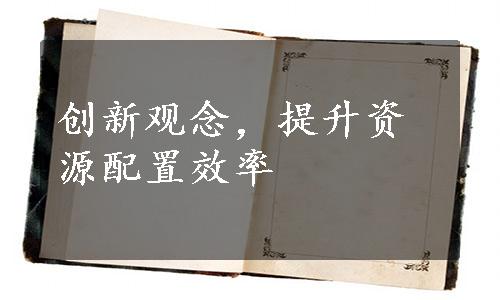 创新观念，提升资
源配置效率